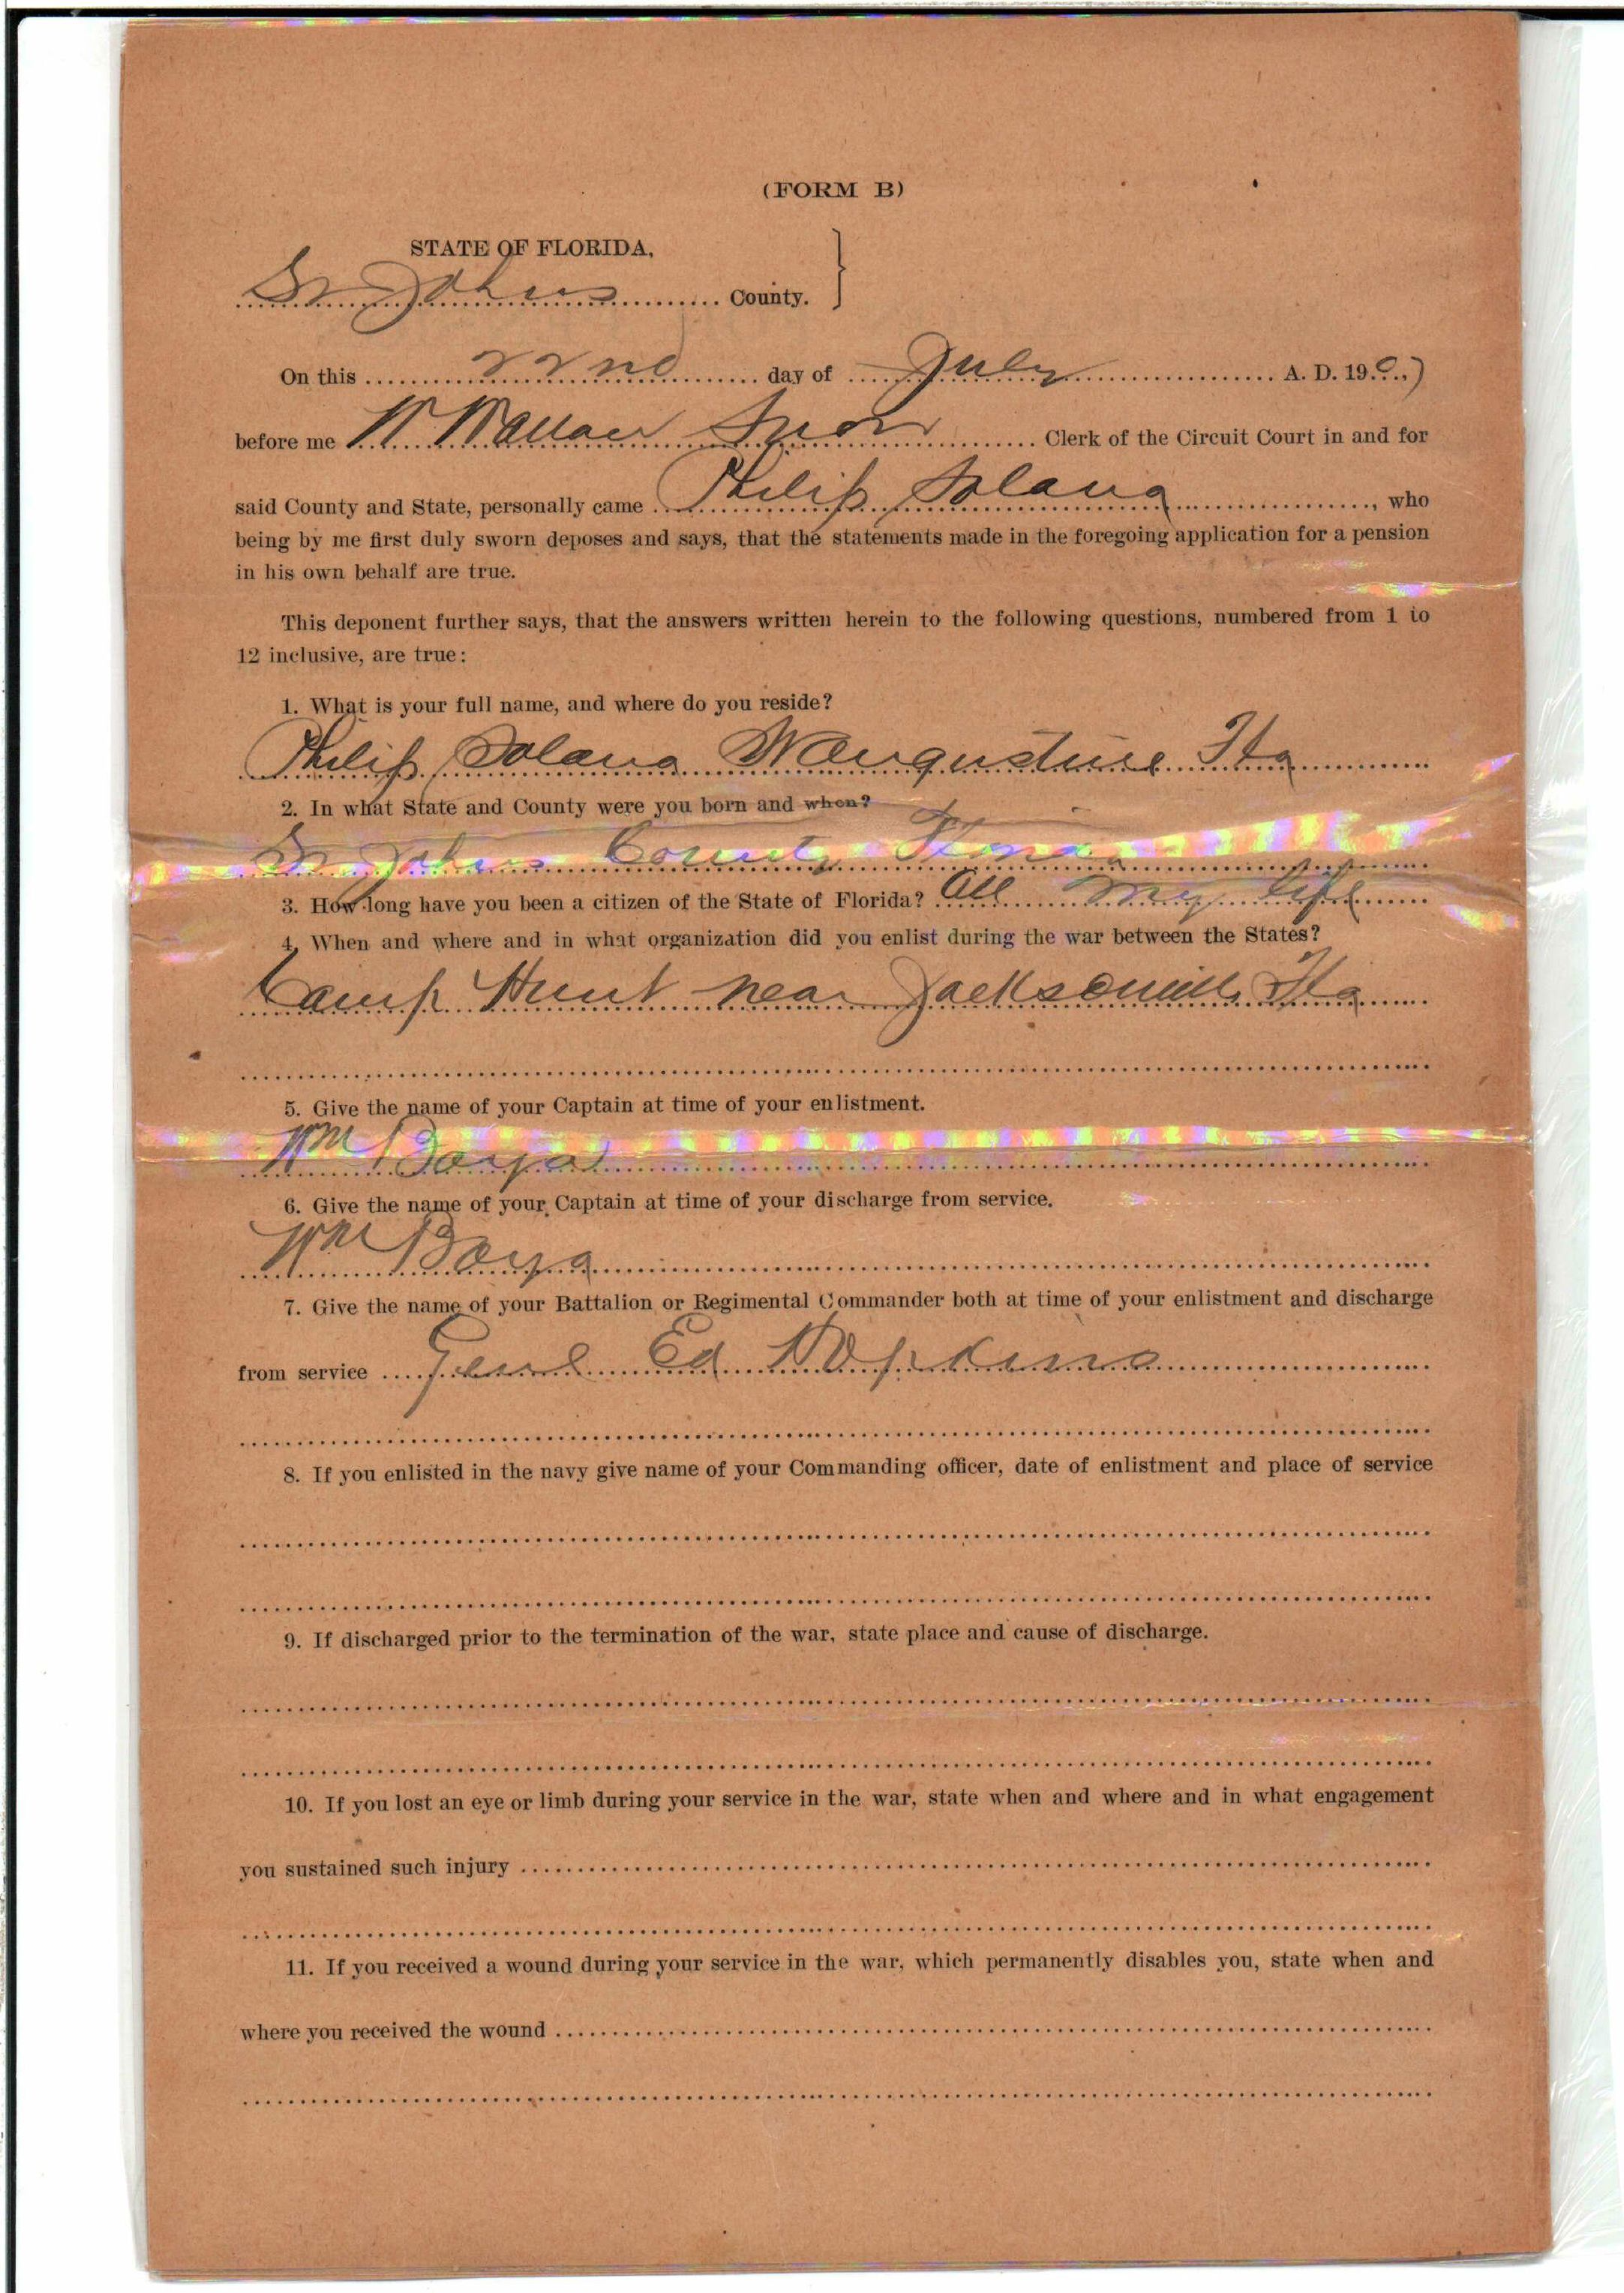 (FORM B)
STATE OF FLORIDA,
St Johns County.
On this 22nd day of July A. D. 190
before me W. Wallace Snow Clerk of the Circuit Court in and for
said County and State, personally came Philip Solana, who
being by me first duly sworn deposes and says, that the statements made in the foregoing application for a pension
in his own behalf are true.
This deponent further says, that the answers written herein to the following questions, numbered from 1 to
12 inclusive, are true:
1. What is your full name, and where do you reside?
Philip Solana St Augustine Fla
2. In what State and County were you born and when?
St Johns County Florida
3. How long have you been a citizen of the State of Florida? All my life
4. When and where and in what organization did you enlist during the war between the States?
Camp Hunt near Jacksonville Fla
5. Give the name of your Captain at time of your enlistment.
Wm Baya
6. Give the name of your Captain at time of your discharge from service.
Wm Baya
7. Give the name of your Battalion or Regimental Commander both at time of your enlistment and discharge
from service Genl Ed Hopkins
8. If you enlisted in the navy give name of your Commanding officer, date of enlistment and place of service
9. If discharged prior to the termination of the war, state place and cause of discharge.
10. If you lost an eye or limb during your service in the war, state when and where and in what engagement
you sustained such injury
11. If you received a wound during your service in the war, which permanently disables you, state when and
where you received the wound